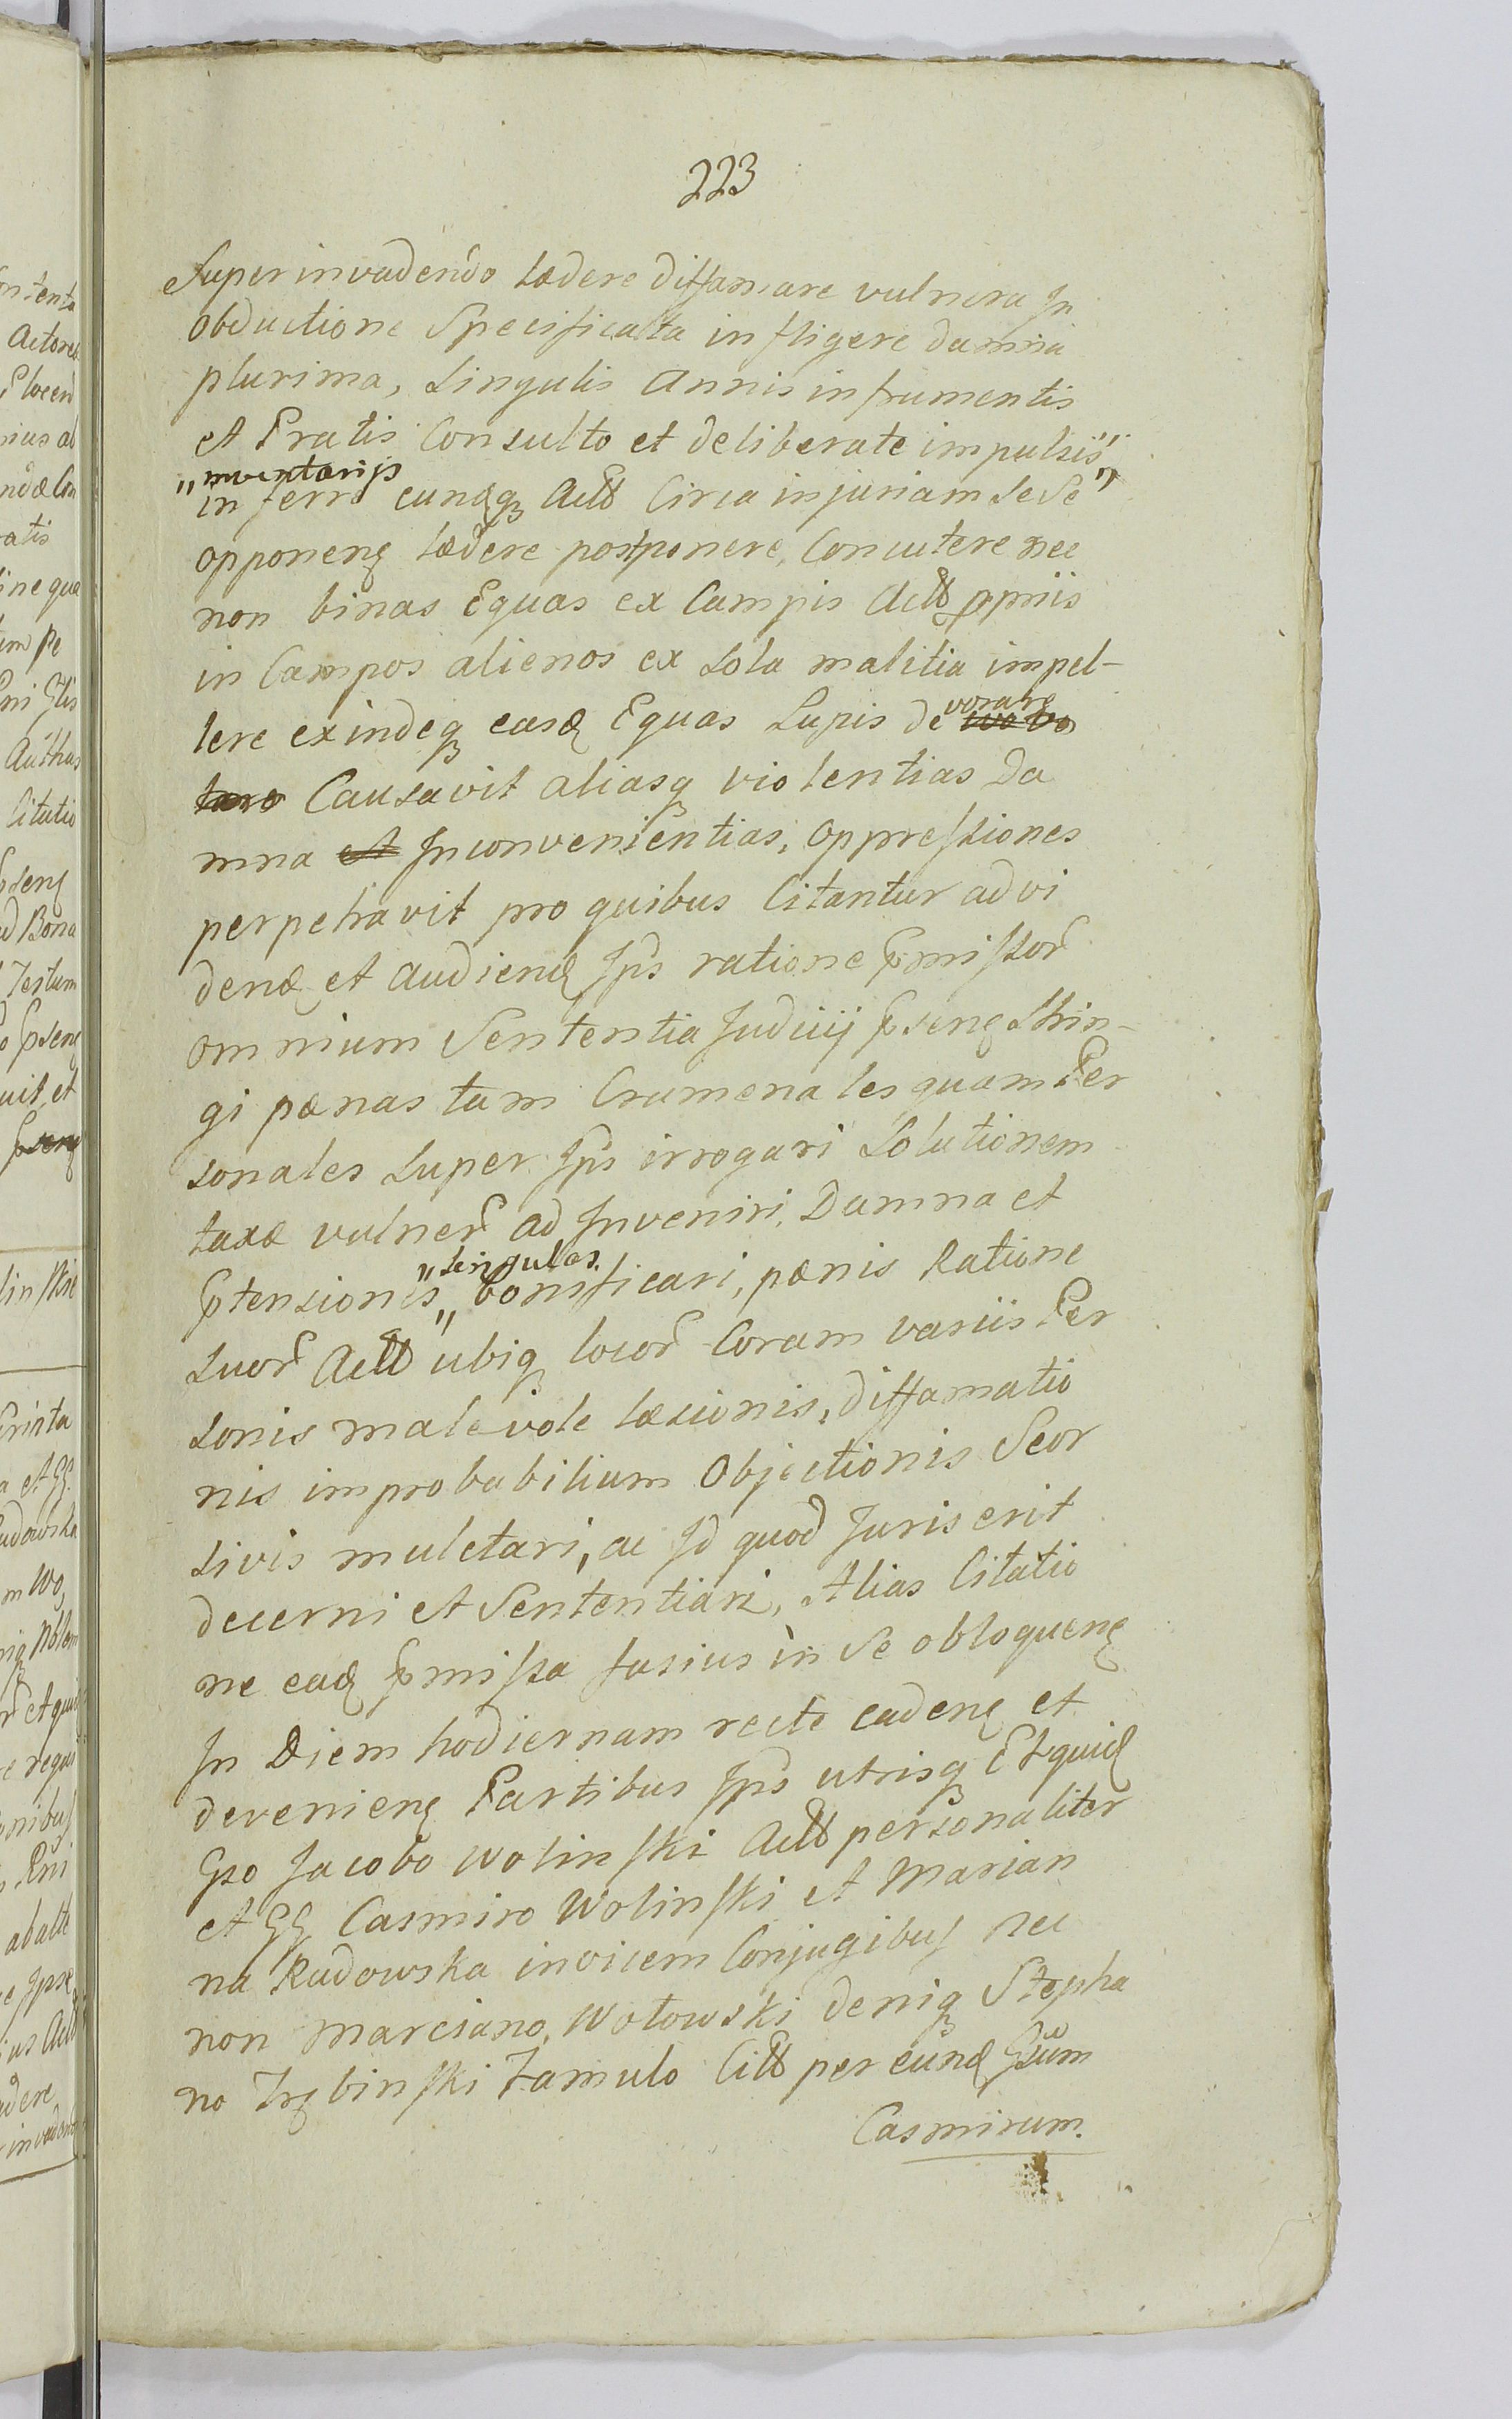 223
Superinvadendo lædere diffamare vulnera In
obductione Specificata infligere damna
plurima, singulis Annis in frumentis
et Pratis Consulto et deliberate impulsis
"inventarijs"
inferre eundq Actt Circa injuriam sese
opponenꝫ lædere postponere, Concutere nec
non binas Equas ex Campis Actt ppriis
in Campos alienos ex sola malitia impel-
lere exindeq easd Equas Lupis de vorare
Causavit aliasq violentias Da
mna et Inconvenientias, oppressiones
perpetravit pro quibus Citantur ad vi
dend et Audiend Ips ratione pmissor
omnium Sententia Judicij psenꝫ Strin-
gi pænas tam Crumenales quam Per
sonales super Ips irrogari Solutionem
taxæ vulner adInveniri, Damna et
"singulas
ptensiones" bonificari, pænis Ratione
suor Actt ubiq locor Coram variis Per
sonis malevole læsionis, diffamatio
nis improbabilium Objectionis Seor
sivis mulctari, ac Id quod Juris erit
decerni et Sententiari, Alias Citatio
ne ead pmissa fusius in se obloquenꝫ
In Diem hodiernam recte cadenꝫ et
devenienꝫ Partibus Ips utrisq Etquid
Gso Jacobo Wolinski Actt personaliter
et GG Casmiro Wolinski et Marian
na Radowska invicem Conjugibus nec
non Marciano, Wołowski deniq Stepha
no Trębinski Famulo Citt per eund Gsum
Casmirum.